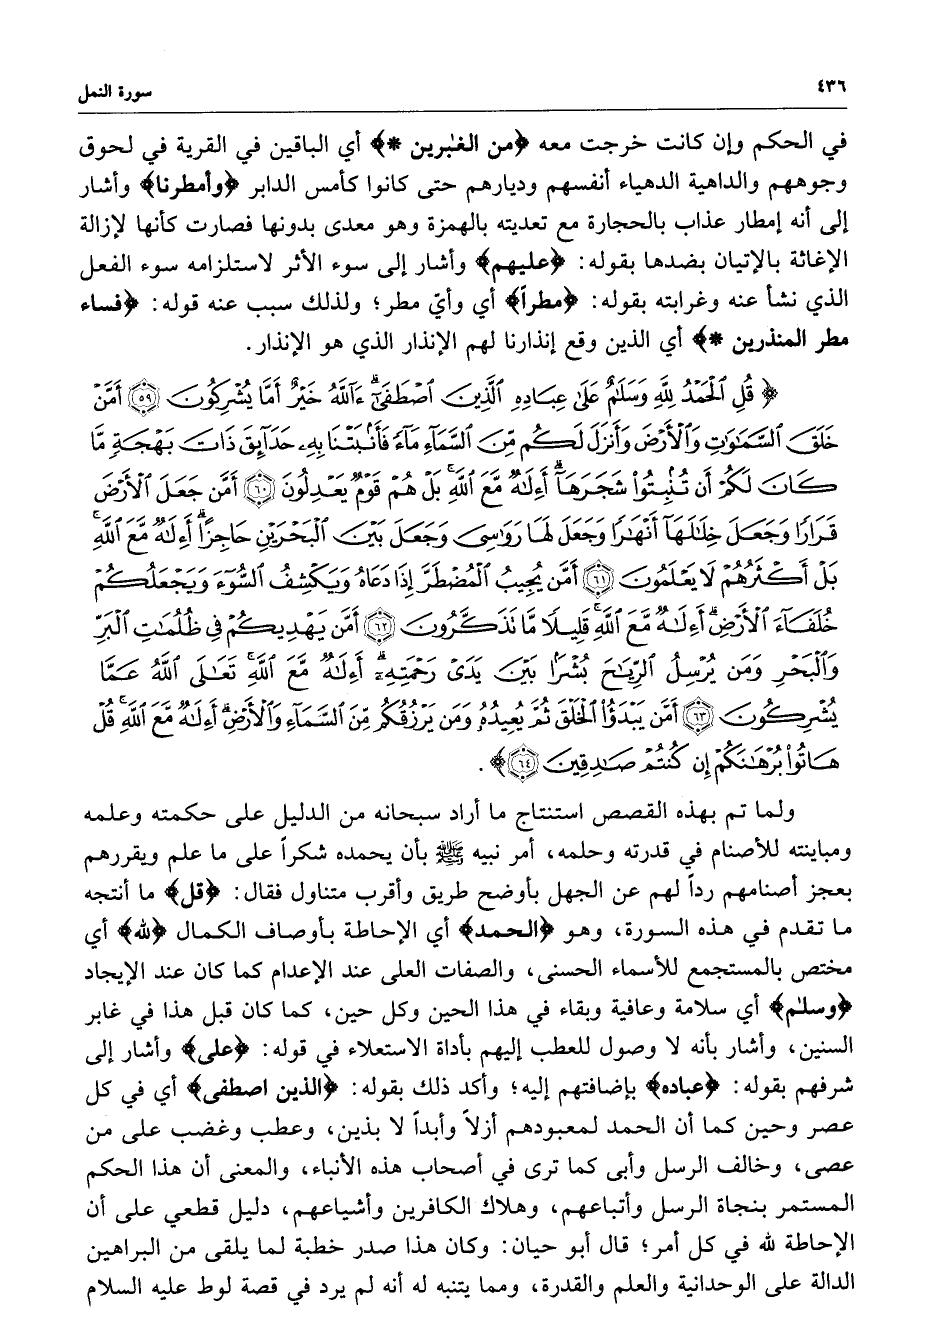 ٤٣٦ سورة النمل
في الحكم وإن كانت خرجت معه ﴿من الغٰبرين *﴾ أي الباقين في القرية في لحوق
وجوههم والداهية الدهياء أنفسهم وديارهم حتى كانوا كأمس الدابر ﴿وأمطرنا﴾ وأشار
إلى أنه إمطار عذاب بالحجارة مع تعديته بالهمزة وهو معدى بدونها فصارت كأنها لإزالة
الإغاثة بالإتيان بضدها بقوله: ﴿عليهم﴾ وأشار إلى سوء الأثر لاستلزامه سوء الفعل
الذي نشأ عنه وغرابته بقوله: ﴿مطراً﴾ أي وأيّ مطر؛ ولذلك سبب عنه قوله: ﴿فساء
مطر المنذرين *﴾ أي الذين وقع إنذارنا لهم الإنذار الذي هو الإنذار.
﴿قُلِ ٱلْحَمْدُ لِلَّهِ وَسَلَٰمٌ عَلَىٰ عِبَادِهِ ٱلَّذِينَ ٱصْطَفَىٰٓ ۗ ءَآللَّهُ خَيْرٌ أَمَّا يُشْرِكُونَ ﴿٥٩﴾ أَمَّنْ
خَلَقَ ٱلسَّمَٰوَٰتِ وَٱلْأَرْضَ وَأَنزَلَ لَكُم مِّنَ ٱلسَّمَآءِ مَآءً فَأَنۢبَتْنَا بِهِۦ حَدَآئِقَ ذَاتَ بَهْجَةٍ مَّا
كَانَ لَكُمْ أَن تُنۢبِتُوا۟ شَجَرَهَآ ۗ أَءِلَٰهٌ مَّعَ ٱللَّهِ ۚ بَلْ هُمْ قَوْمٌ يَعْدِلُونَ ﴿٦٠﴾ أَمَّن جَعَلَ ٱلْأَرْضَ
قَرَارًا وَجَعَلَ خِلَٰلَهَآ أَنْهَٰرًا وَجَعَلَ لَهَا رَوَٰسِىَ وَجَعَلَ بَيْنَ ٱلْبَحْرَيْنِ حَاجِزًا ۗ أَءِلَٰهٌ مَّعَ ٱللَّهِ ۚ
بَلْ أَكْثَرُهُمْ لَا يَعْلَمُونَ ﴿٦١﴾ أَمَّن يُجِيبُ ٱلْمُضْطَرَّ إِذَا دَعَاهُ وَيَكْشِفُ ٱلسُّوٓءَ وَيَجْعَلُكُمْ
خُلَفَآءَ ٱلْأَرْضِ ۗ أَءِلَٰهٌ مَّعَ ٱللَّهِ ۚ قَلِيلًا مَّا تَذَكَّرُونَ ﴿٦٢﴾ أَمَّن يَهْدِيكُمْ فِى ظُلُمَٰتِ ٱلْبَرِّ
وَٱلْبَحْرِ وَمَن يُرْسِلُ ٱلرِّيَٰحَ بُشْرًۢا بَيْنَ يَدَىْ رَحْمَتِهِۦٓ ۗ أَءِلَٰهٌ مَّعَ ٱللَّهِ ۚ تَعَٰلَى ٱللَّهُ عَمَّا
يُشْرِكُونَ ﴿٦٣﴾ أَمَّن يَبْدَؤُا۟ ٱلْخَلْقَ ثُمَّ يُعِيدُهُۥ وَمَن يَرْزُقُكُم مِّنَ ٱلسَّمَآءِ وَٱلْأَرْضِ ۗ أَءِلَٰهٌ مَّعَ ٱللَّهِ ۚ قُلْ
هَاتُوا۟ بُرْهَٰنَكُمْ إِن كُنتُمْ صَٰدِقِينَ ﴿٦٤﴾﴾.
ولما تم بهذه القصص استنتاج ما أراد سبحانه من الدليل على حكمته وعلمه
ومباينته للأصنام في قدرته وحلمه، أمر نبيه ﷺ بأن يحمده شكراً على ما علم ويقررهم
بعجز أصنامهم رداً لهم عن الجهل بأوضح طريق وأقرب متناول فقال: ﴿قل﴾ ما أنتجه
ما تقدم في هذه السورة، وهو ﴿الحمد﴾ أي الإحاطة بأوصاف الكمال ﴿لله﴾ أي
مختص بالمستجمع للأسماء الحسنى، والصفات العلى عند الإعدام كما كان عند الإيجاد
﴿وسلٰم﴾ أي سلامة وعافية وبقاء في هذا الحين وكل حين، كما كان قبل هذا في غابر
السنين، وأشار بأنه لا وصول للعطب إليهم بأداة الاستعلاء في قوله: ﴿على﴾ وأشار إلى
شرفهم بقوله: ﴿عباده﴾ بإضافتهم إليه؛ وأكد ذلك بقوله: ﴿الذين اصطفى﴾ أي في كل
عصر وحين كما أن الحمد لمعبودهم أزلاً وأبداً لا بذين، وعطب وغضب على من
عصى، وخالف الرسل وأبى كما ترى في أصحاب هذه الأنباء، والمعنى أن هذا الحكم
المستمر بنجاة الرسل وأتباعهم، وهلاك الكافرين وأشياعهم، دليل قطعي على أن
الإحاطة لله في كل أمر؛ قال أبو حيان: وكان هذا صدر خطبة لما يلقى من البراهين
الدالة على الوحدانية والعلم والقدرة، ومما يتنبه له أنه لم يرد في قصة لوط عليه السلام